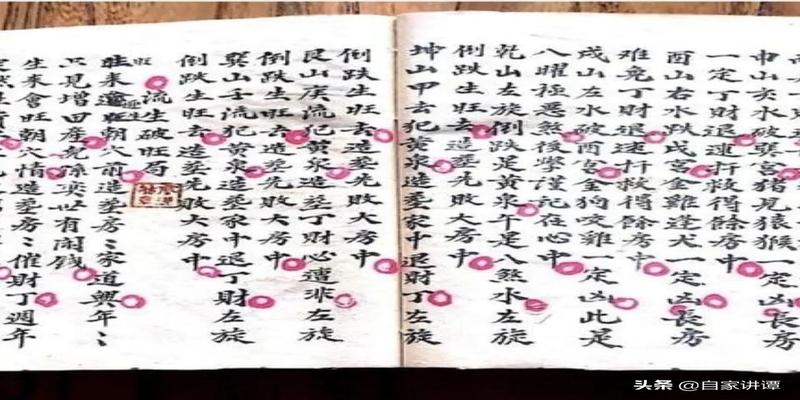 申山亥水破巽宮猪見猿猴一定凶
一定丁財退速扦救得餘房中
酉山右水跌戌宮金雞逢犬一定凶長房
難免丁財退速扦救得餘房中
戌山左水破酉宮金狗咬雞一定凶此是
八曜極惡煞後學謹記在心中
乾山左旋倒跌是黃泉午是八煞水左旋
倒跌生旺去造塋先敗大房中
坤山甲去犯黃泉造塋家中退財丁左旋
倒跌生旺去造塋先敗大房中
艮山庚流犯黃泉造塋丁財必遭非左旋
倒跌生旺去造塋先敗大房中
巽山壬流犯黃泉造塋家中退丁財左旋
倒跌生旺去造塋先敗大房中
流生破旺
旺來 朝穴前造塋房々家道興年々
只見增田產兒孫樂世有閑錢
生來會旺朝穴情造塋房々催財丁週年
头条 @自家讲谭